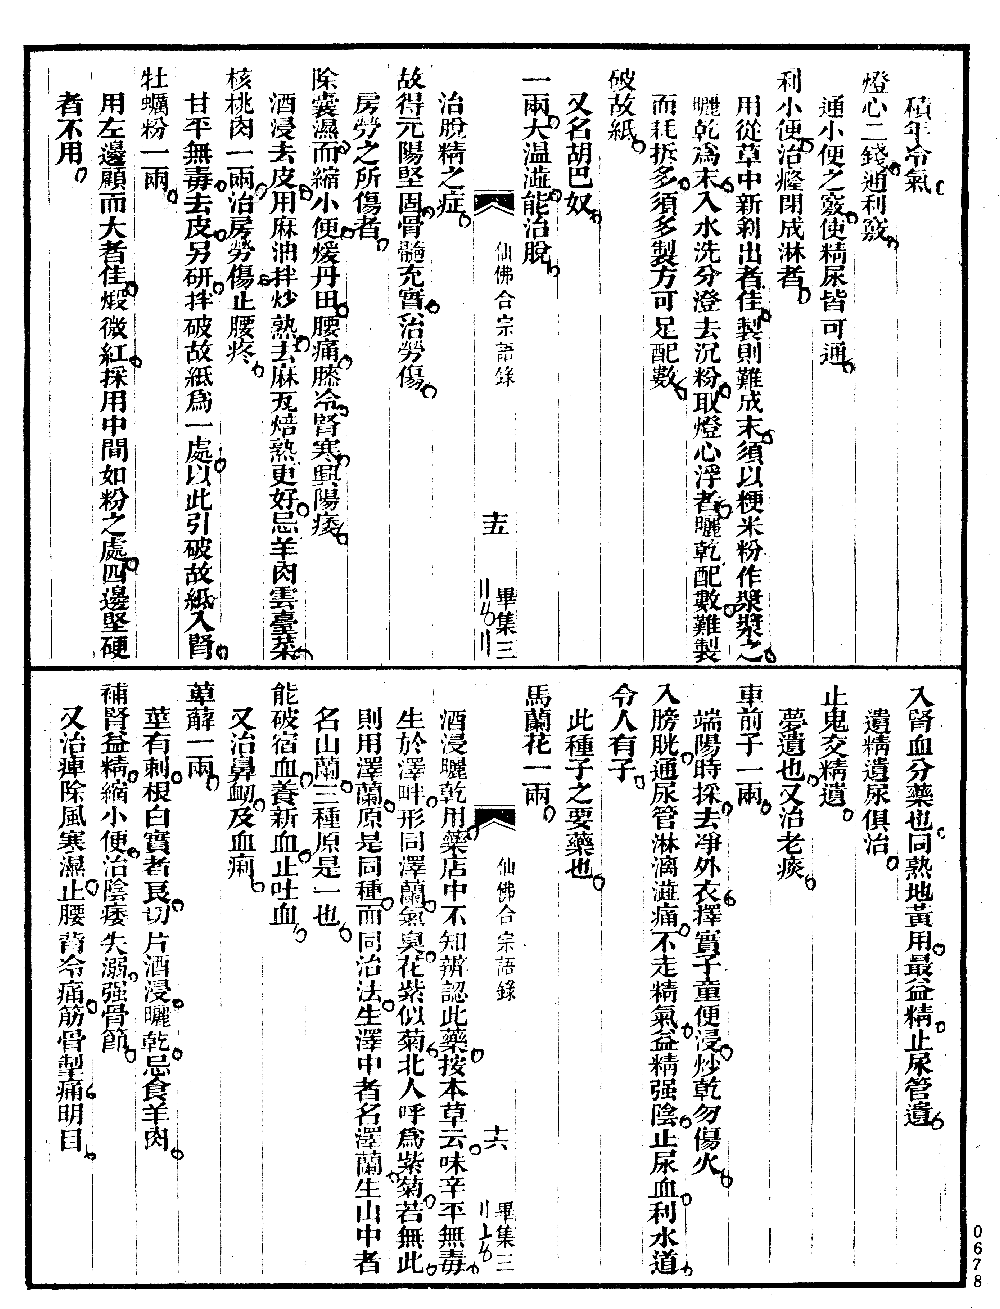 積年冷氣。
燈心二錢。通利竅。
通小便之竅。使精尿皆可通。
利小便。治癃閉成淋者。
用從草中新剝出者佳。製則難成末。須以粳米粉作漿。漿之。
曬乾爲末。入水洗。分澄去沉粉。取燈心浮者。曬乾配數。難製
而耗折多。須多製方可足配數。
破故紙。
又名胡巴奴。
一兩。大溫。澁。能治脫。
治脫精之症。
故得元陽堅固。骨髓充實。治勞傷。
房勞之所傷者。
除囊濕而縮小便。煖丹田。腰痛。膝冷。腎寒。興陽痿。
酒浸去皮。用麻油拌炒熟。去麻。瓦焙熟更好。忌羊肉雲臺菜。
核桃肉一兩。治房勞傷。止腰疼。
甘平無毒。去皮另研。拌破故紙爲一處。以此引破故紙入腎。
牡蠣粉一兩。
用左邊顧而大者佳。煅微紅。採用中間如粉之處。四邊堅硬
者不用。
仙佛合宗語錄
十五
畢集三
入腎血分藥也。同熟地黃用。最益精。止尿管遺。
遺精遺尿俱治。
止鬼交精遺。
夢遺也。又治老痰。
車前子一兩。
端陽時採。去凈外衣。擇實子。童便浸。炒乾勿傷火。
入膀胱。通尿管淋漓澁痛。不走精氣。益精强陰。止尿血。利水道。
令人有子。
此種子之要藥也。
馬蘭花一兩。
酒浸曬乾用。藥店中不知辨認此藥。按本草云。味辛平無毒。
生於澤畔。形同澤蘭。氣臭。花紫似菊。北人呼爲紫菊。若無此。
則用澤蘭。原是同種。而同治法。生澤中者名澤蘭。生山中者
名山蘭。三種原是一也。
能破宿血。養新血。止吐血。
又治鼻衂。及血痢。
萆薢一兩。
莖有刺。根白實者良。切片酒浸。曬乾。忌食羊肉。
補腎益精。縮小便。治陰痿失溺。强骨節。
又治痺。除風寒濕。止腰背冷痛。筋骨掣痛。明目。
仙佛合宗語錄
十六
畢集三
0678